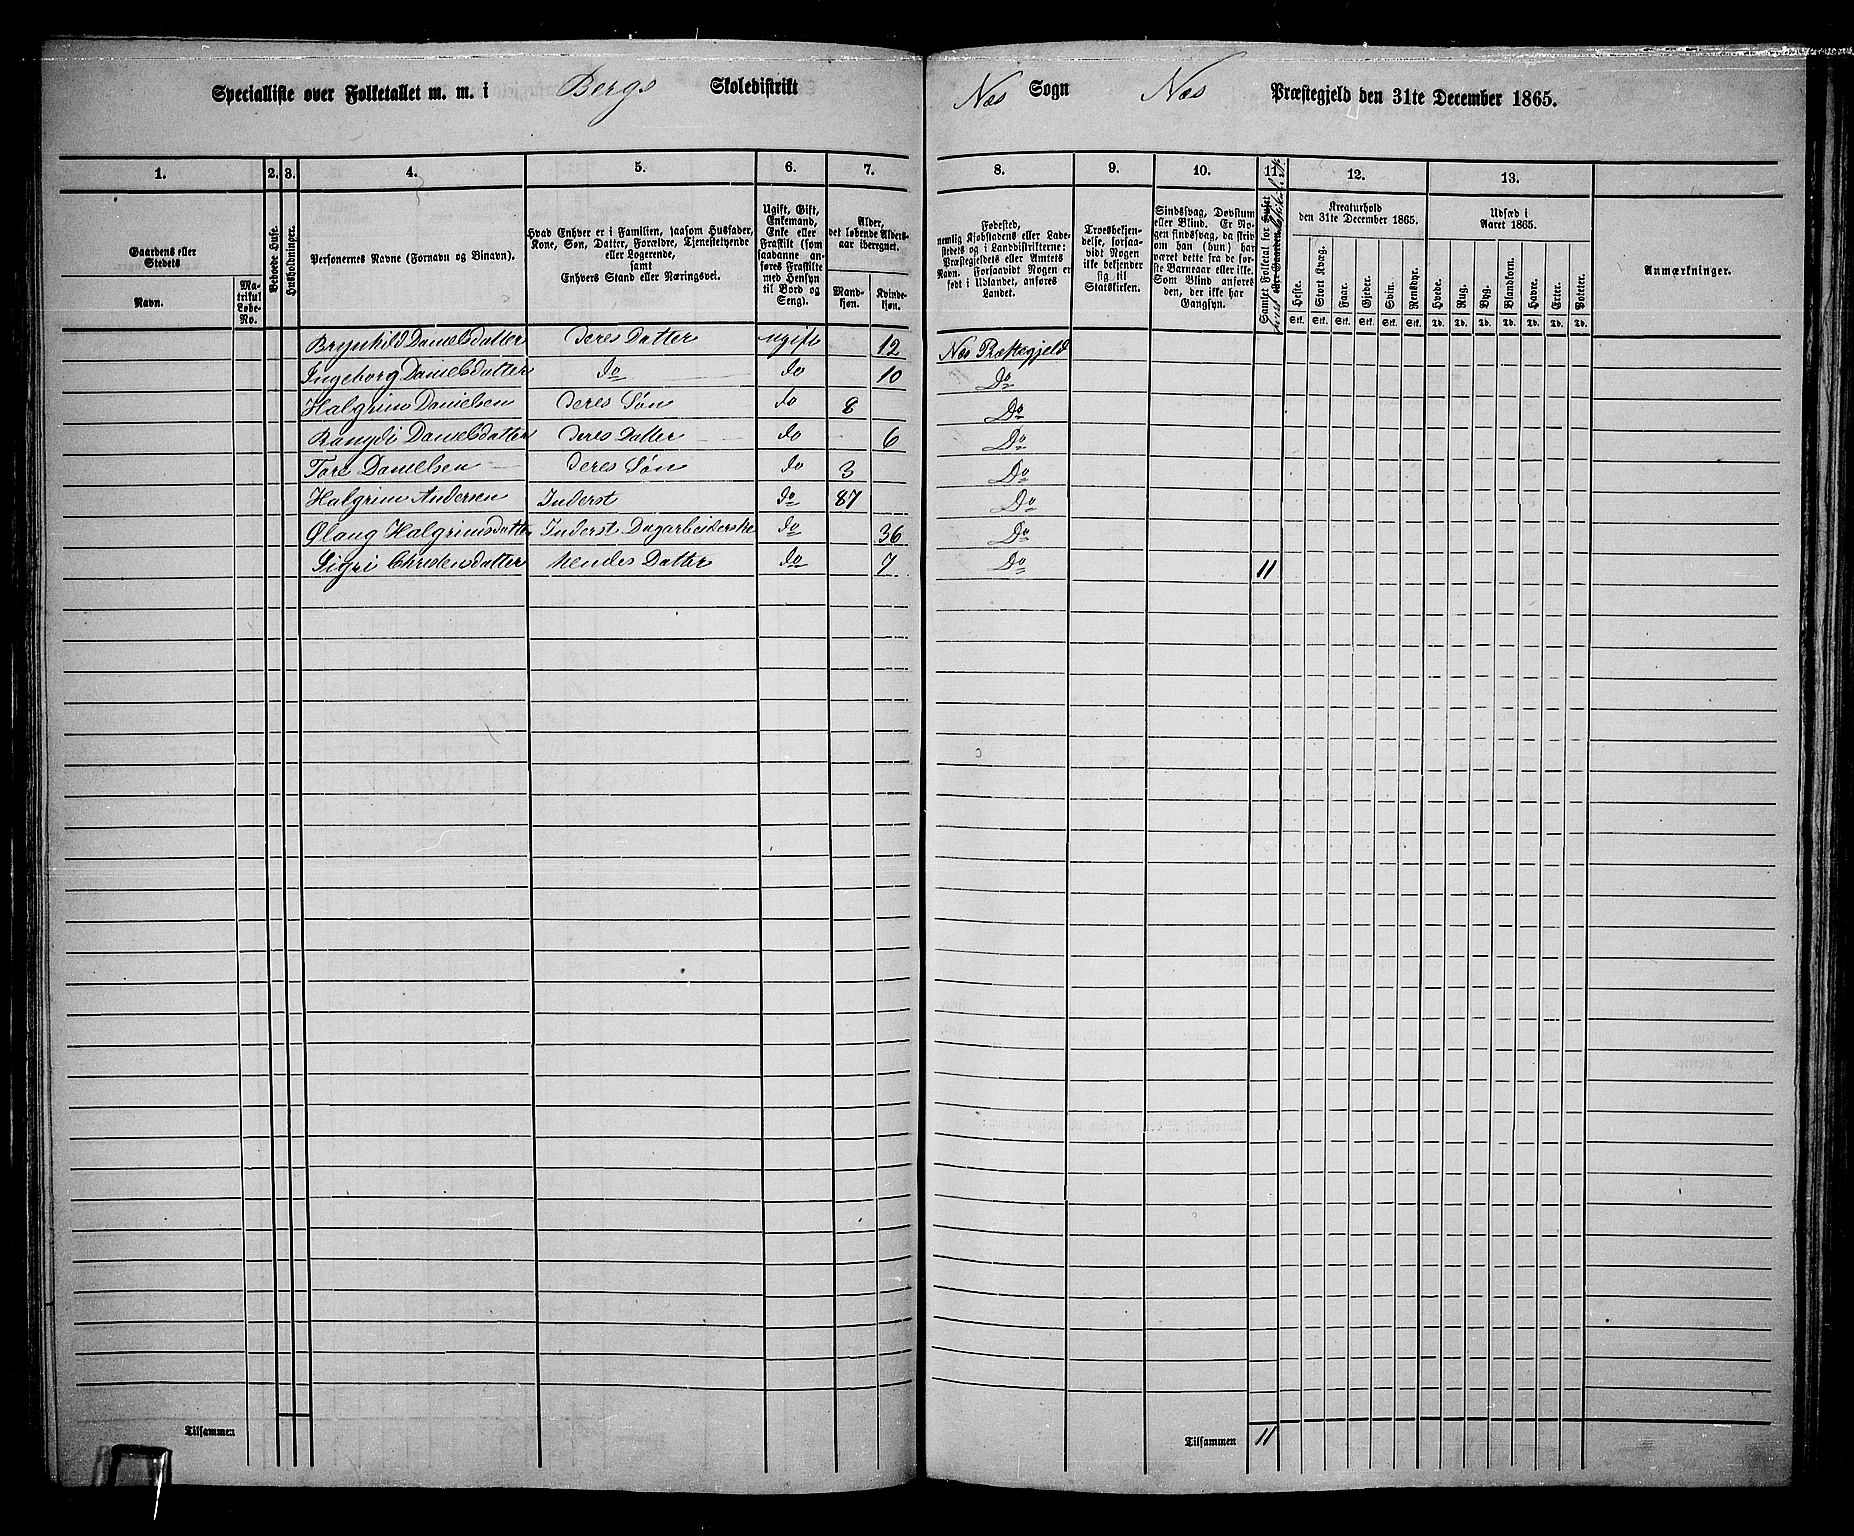 Specialliste over Folketallet m. m. i Bergs Skoledistrikt Næs Sogn Næs Præstegjeld den 31te December 1865.
1. 2. 3. 4. 5. 6. 7. 8. 9. 10. 11. 12. 13.
Gaardens eller Stedets
Navn.
Matrikul Løbe-No.
Beboede Huse.
Husholdninger.
Personernes Navne (Fornavn og Binavn).
Hvad Enhver er i Familien, saasom Husfader, Kone, Søn, Datter, Forældre, Tjenestetyende eller Logerende, samt Enhvers Stand eller Næringsvei.
Ugift, Gift, Enkemand, Enke eller Fraskilt (som saadanne anføres Fraskilte med Hensyn til Bord og Seng).
Alder, det løbende Aldersaar iberegnet.
Mandkjøn.
Kvindekjøn.
Fødested, nemlig Kjøbstadens eller Ladestedets og i Landdistrikterne: Præstegjeldets eller Amtets Navn. Forsaavidt Nogen er født i Udlandet, anføres Landet.
Troesbekjendelse, forsaavidt Nogen ikke bekjender sig til Statskirken.
Sindssvag, Døvstum eller Blind. Er Nogen sindssvag, da skriv om han (hun) har været dette fra de første Barneaar eller ikke. Som Blind anføres den, der ikke har Gangsyn.
Samlet Folketal for
Kreaturhold den 31te December 1865.
Heste. Stort Kvæg. Faar. Gjeder. Svin. Rensdyr.
Stk. Stk. Stk. Stk. Stk. Stk.
Udsæd i Aaret 1865.
Hvede. Rug. Byg. Blandkorn. Havre. Erter. Poteter.
Td. Td. Td. Td. Td. Td. Td.
Anmærkninger.
Brynhild Danielsdatter deres Datter ugift 12 Næs Præstegjeld
Ingeborg Danielsdatter do do 10 Do
Halgrim Danielsen deres Søn do 8 Do
Rangdi Danielsdatter deres Datter do 6 Do
Tore Danielsen deres Søn do 3 Do
Halgrim Andersen Inderst do 87 Do
Ølaug Halgrimsdatter Inderst Dagarbeiderske do 36 Do
Sigri Christensdatter hendes Datter do 7 Do 11
Tilsammen Tilsammen 11